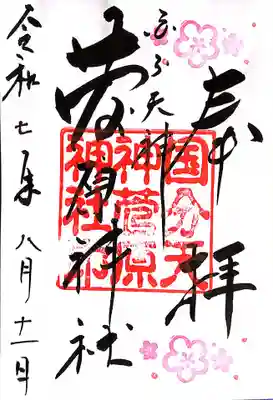 奉拝
国分天神
菅原神社
国分天
神菅原
神社印
令和七年八月十一日